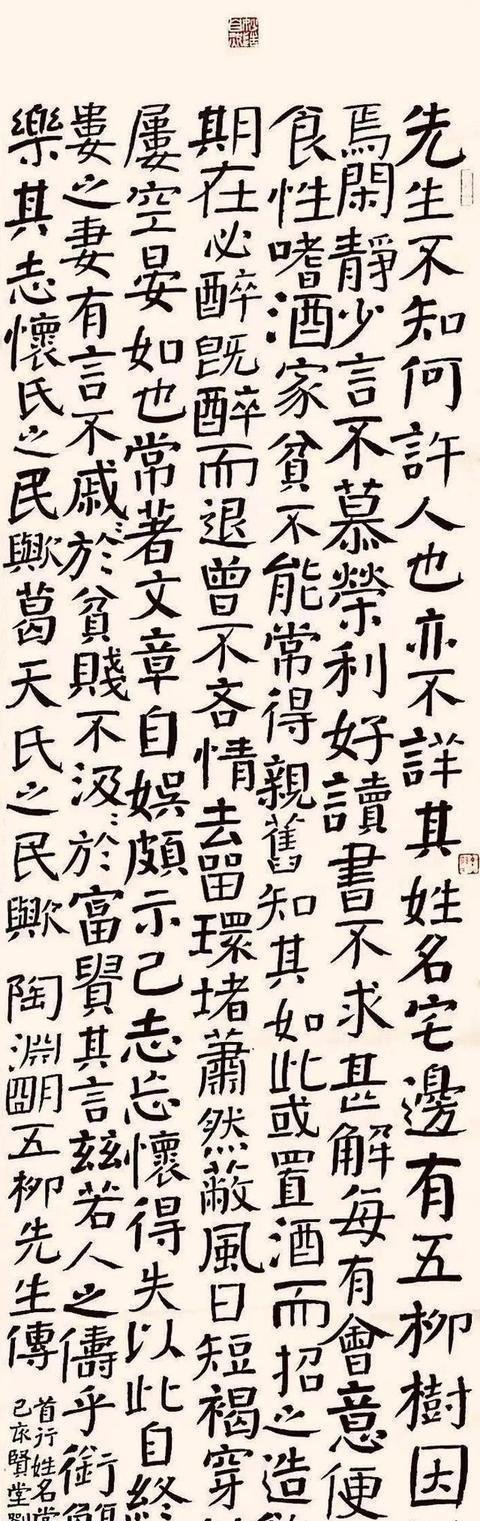 先生不知何許人也亦不詳其姓名宅邊有五柳樹因
焉閑靜少言不慕榮利好讀書不求甚解每有會意便
食性嗜酒家貧不能常得親舊知其如此或置酒而招之造
期在必醉既醉而退曾不吝情去留環堵蕭然蔽風日短褐穿
屢空晏如也常著文章自娛頗示己志忘懷得失以此自終
婁之妻有言不戚〻於貧賤不汲〻於富貴其言茲若人之儔乎銜
樂其志懷氏之民歟葛天氏之民歟 陶淵明五柳先生傳
首行姓名
己亥賢堂劉